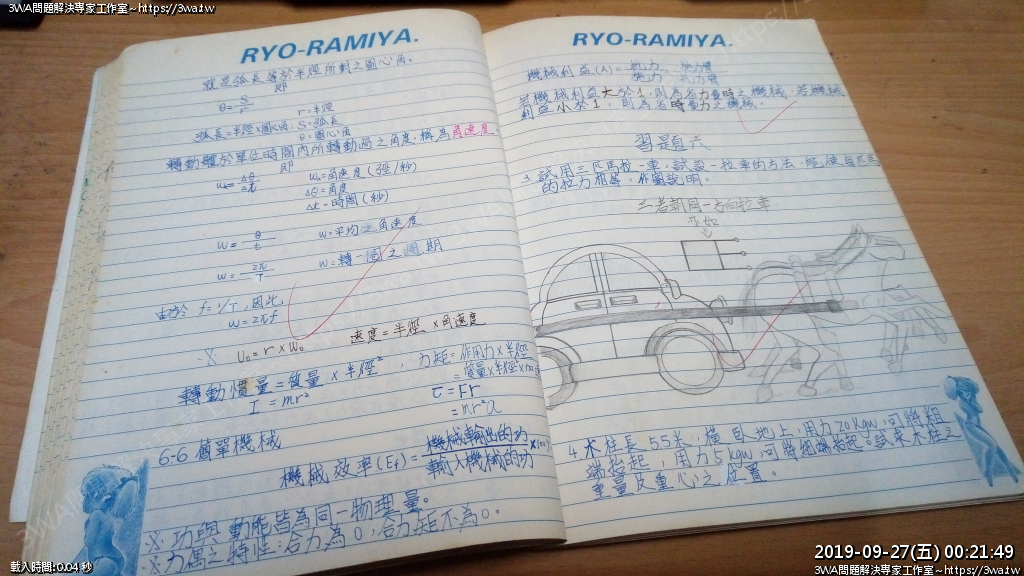 3WA問題解決專家工作室~https://3wa.tw
RYO-RAMIYA.
就是弧長等於半徑所對之圓心角。
即
θ= S/r
r=半徑
弧長=半徑×圓心角; S=弧長
θ=圓心角
轉動體於單位時間內所轉動過之角度,稱為角速度.
即
Δθ/Δt
=角速度(弳/秒)
Δθ=角度
Δt=時間(秒)
w= θ/t
w=平均之角速度
w= 2π/T
w=轉一圈之週期
由於 f=1/T,因此,
w=2πf
※ U₀=r×W₀
速度=半徑×角速度
轉動慣量=質量×半徑²,
I=mr²
力矩=作用力×半徑
=質量×半徑×
τ=Fr
=mr²α
6-6 簡單機械
機械效率(Ef)= 機械輸出的功/輸入機械的功
※功與動能皆為同一物理量。
※力偶之特性:合力為0,合力矩不為0。
RYO-RAMIYA.
機械利益(A)=
若機械利益大於1,則為省力費時之機械,若機械
利益小於1,則為省時費力之機械.
習題六
3.試用三匹馬拉一車,試設一拉車的方法,能使每匹馬
的拉力相等,作圖說明。
三者朝同一方向拉車
4.木柱長55米,橫臥地上,用力20kgw,可將粗
端抬起,用力5kgw,可將細端抬起。試求木柱之
重量及重心之位置。
載入時間:0.04 秒
2019-09-27(五) 00:21:49
3WA問題解決專家工作室~https://3wa.tw